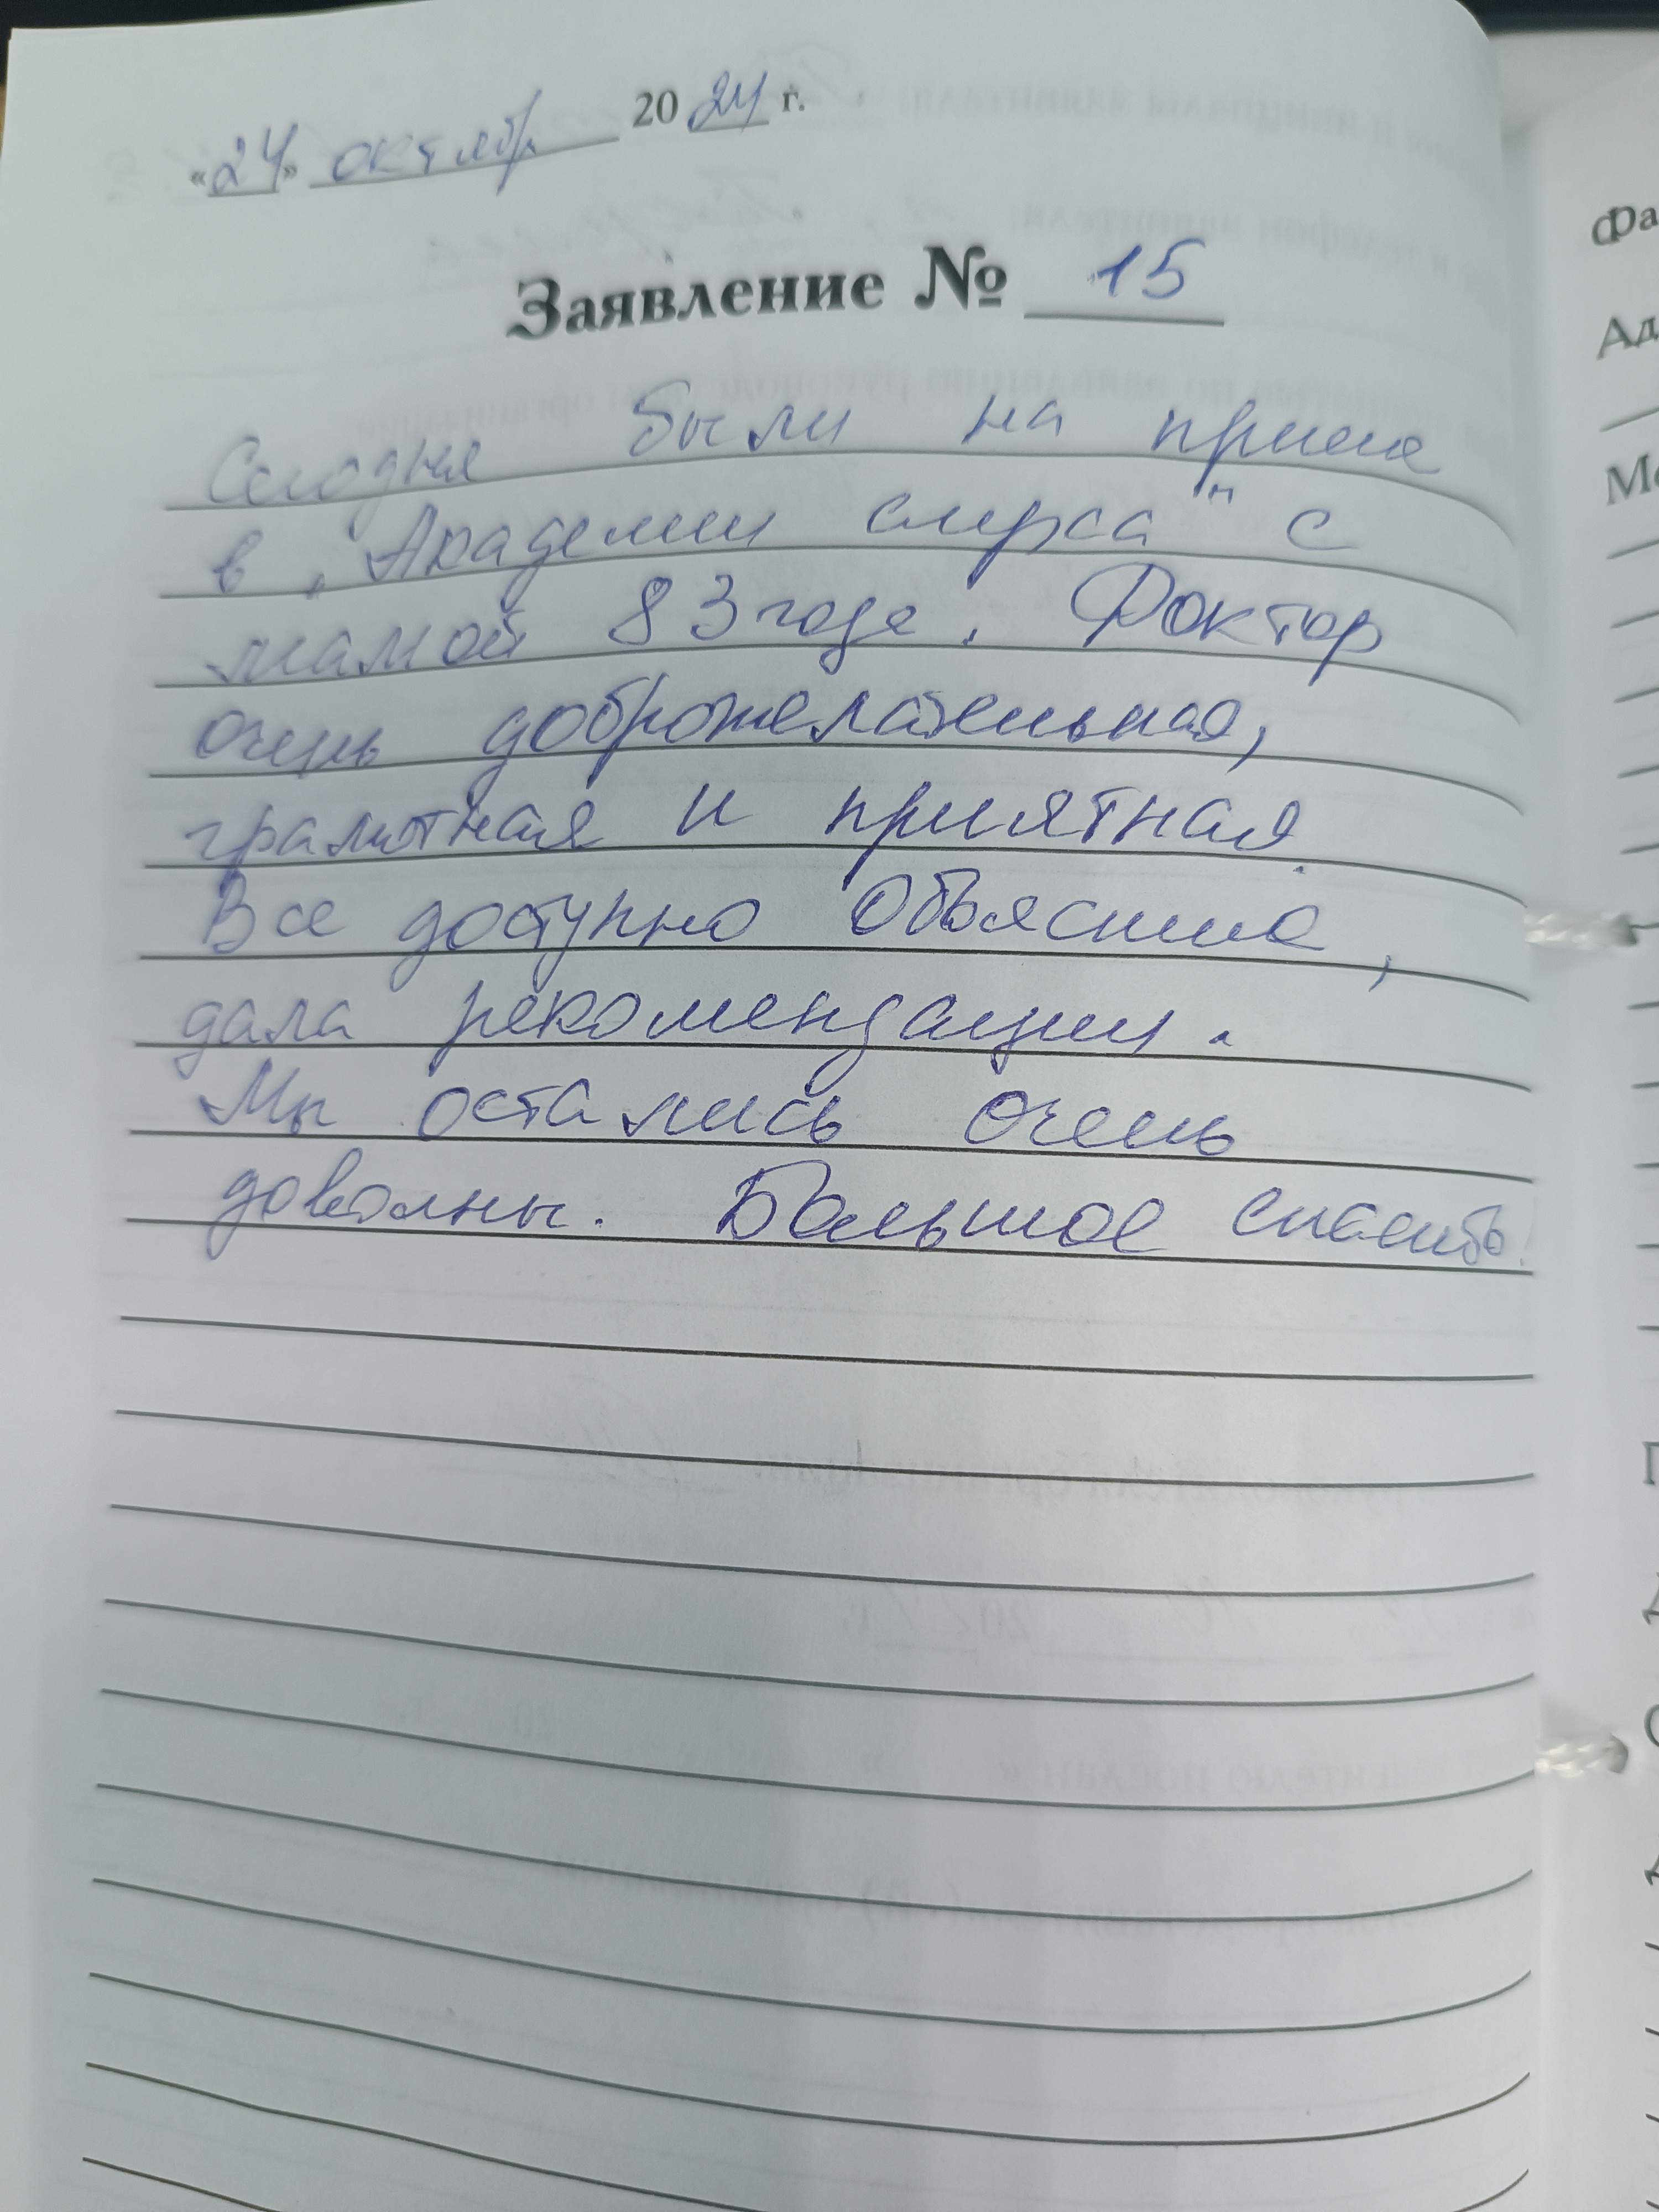 «24» октябр 2024 г.
Заявление № 15
Сегодня были на приеме
в "Академии слуха" с
мамой 83 года. Доктор
очень доброжелательная,
грамотная и приятная.
Все доступно объяснила,
дала рекомендации.
Мы остались очень
довольны. Большое спасибо!
Фа
Ад